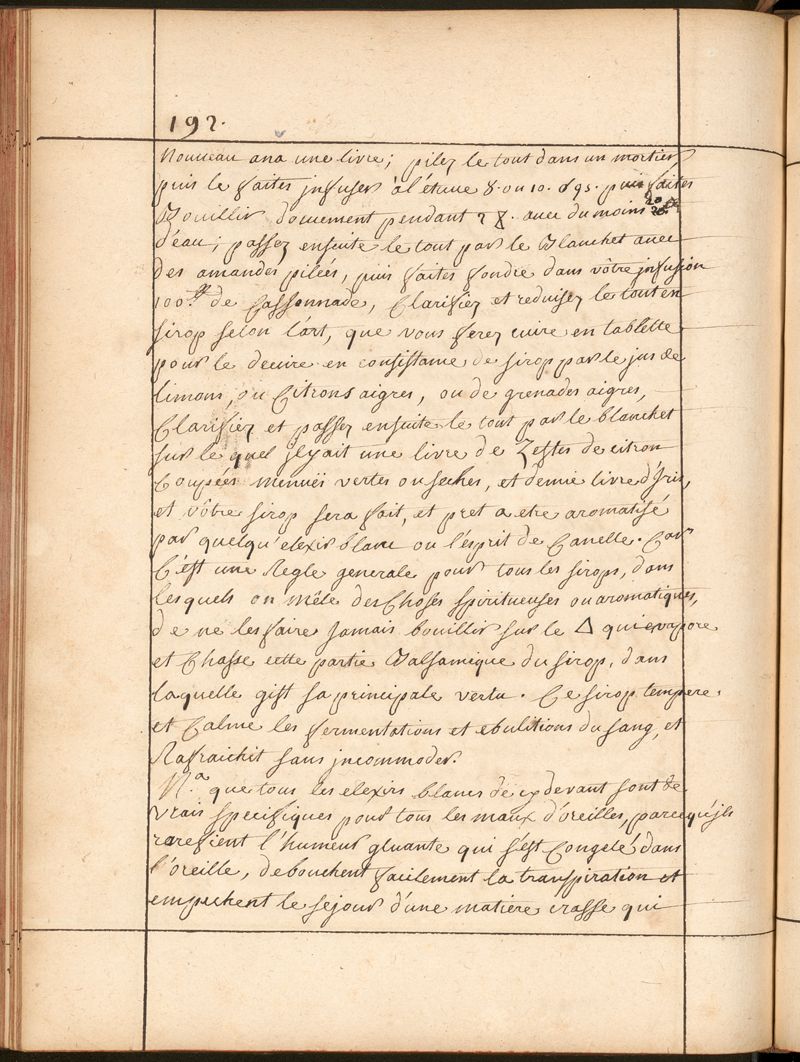 192.
Nouveau ana une livre; pilez le tout dans un mortier,
puis le faites jnfuser à l'étuve 8. ou 10. puis faites
Bouillir doucement pendant 2 avec du moins 20
d'eau; passez ensuite le tout par le Blanchet avec
des amandes pilées, puis faites fondre dans vôtre jnfusion
100.# de Cassonnade, Clarifiez et reduisez le tout en
sirop selon l'art, que vous ferez cuire en tablette
pour le decuire en consistance de sirop par le jus de
limons, ou Citrons aigres, ou de grenades aigres,
Clarifiez et passez ensuite le tout par le blanchet
sur le quel jl y ait une livre de Zestes de citron
Coupées menuës vertes ou seches, et demie livre d'Iris,
et vôtre sirop sera fait, et pret a etre aromatisé
par quelqu'elexir blanc ou l'esprit de Canelle. Car
C'est une Regle generale pour tous les sirops, dans
lesquels on mêle des Choses spiritueuses ou aromatiques,
de ne les faire Jamais bouillir sur le △ qui evapore
et Chasse cette partie Balsamique du sirop, dans
laquelle gist sa principale vertu. Ce sirop tempere,
et Calme les fermentations et ebulitions du sang, et
Rafraichit sans jncommoder.
N.a que tous les elexirs blancs de cy devant sont de
vrais specifiques pour tous les maux d'oreilles, parcequ'jls
rarefient l'humeur gluante qui s'est Congelé dans
l'oreille, debouchent facilement la transpiration et
empechent le sejour d'une matiere crasse qui